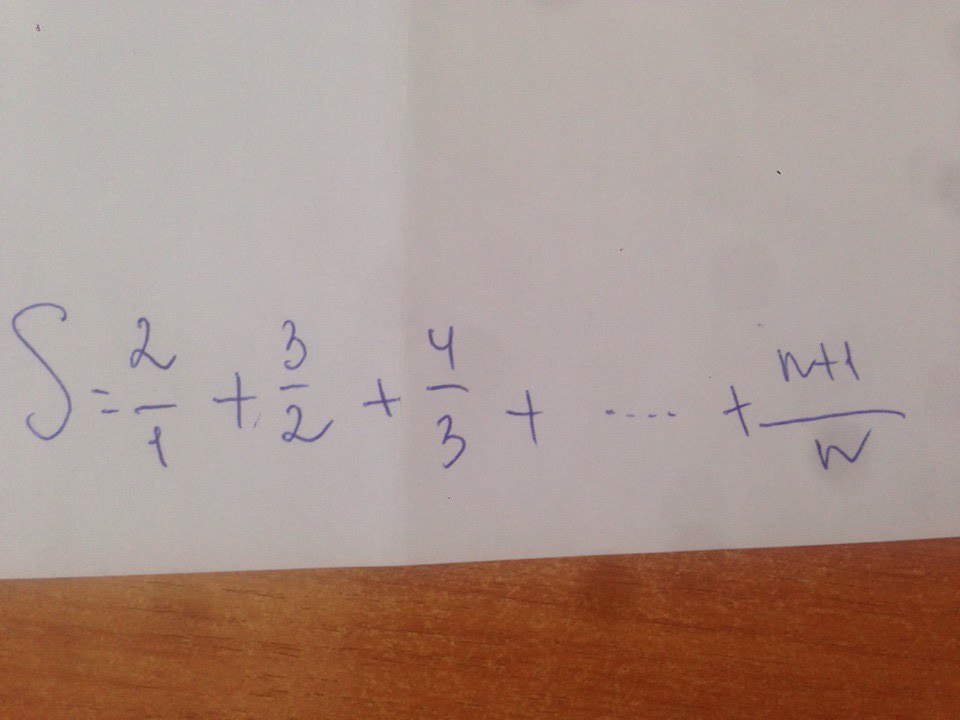 S = 2/1 + 3/2 + 4/3 + .... + n+1/n